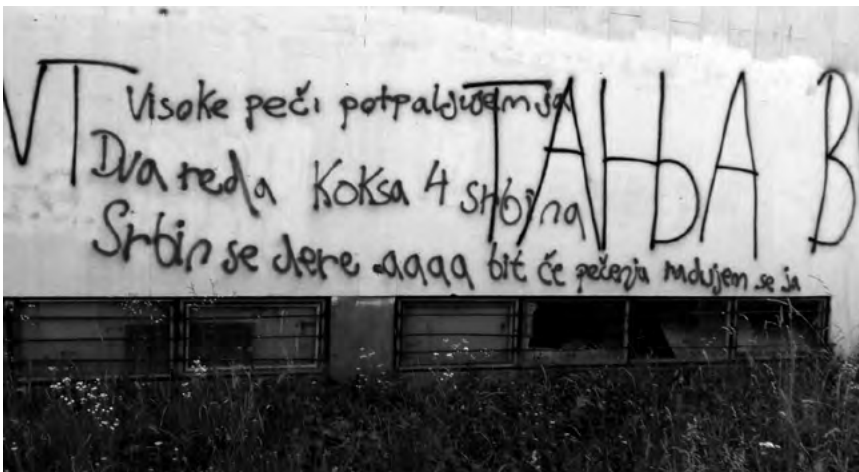 VT
Visoke peči potpaljujem ja
ТАЊА В
Dva reda Koksa 4 srbina
Srbin se dere .aaaa bit će pečenja radujem se ja